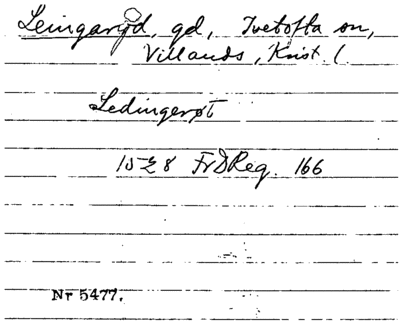 Leingaryd, gd, Ivetofta sn,
Villands, Krist. l.
Ledingerøt
1528 FrDReg. 166
Nr 5477.